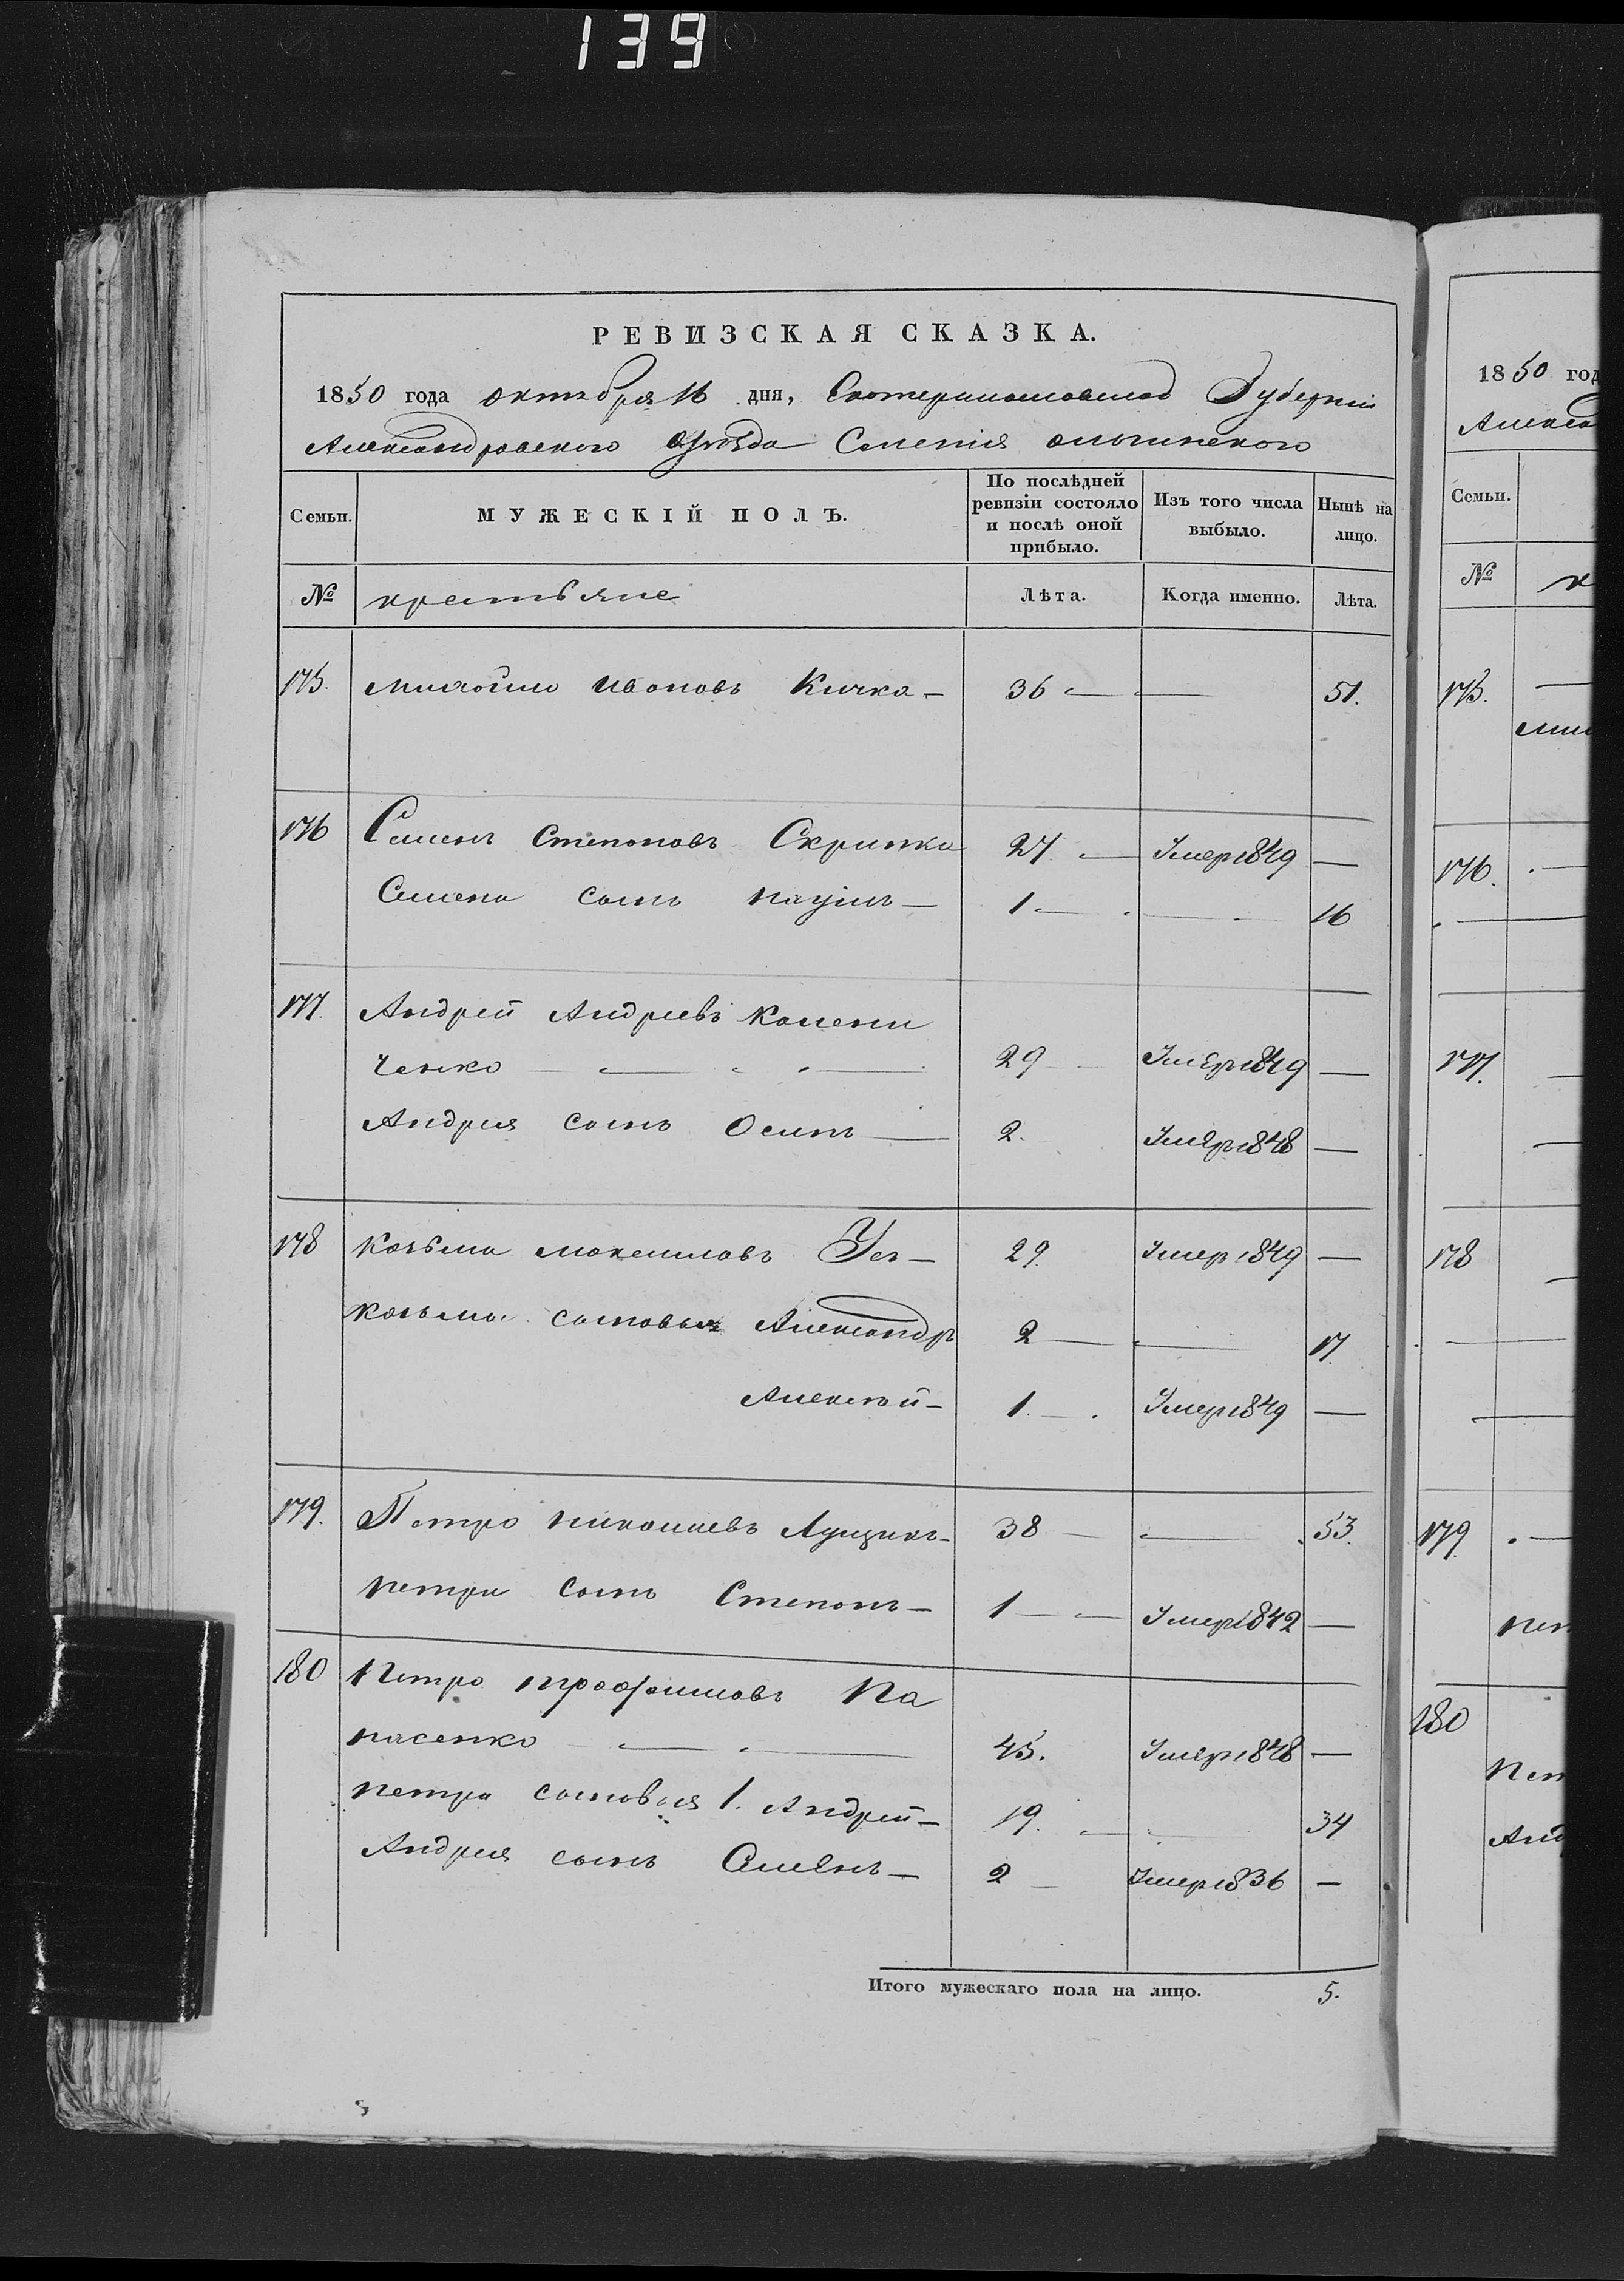 139
РЕВИЗСКАЯ СКАЗКА.
1850 года октября 16 дня, Екатеринославской Губернии
Александровского уѣзда Селенія
Семьи.
МУЖЕСКІЙ ПОЛЪ.
По послѣдней ревизіи состояло и послѣ оной прибыло.
Изъ того числа выбыло.
Нынѣ на лицо.
№ крестьяне Лѣта. Когда именно. Лѣта.
175. Михайло Ивановъ Кичка — 36 — — 51.
176 Семенъ Степановъ Скрипка 27 — Умер 1849 —
Семена сынъ Наумъ — 1 — — 16
177. Андрей Андреевъ Калени
ченко — — — 29 — Умер 1849 —
Андрея сынъ Осипъ — 2. Умер 1848 —
178 Козьма Мокеимовъ — 29. Умер 1849 —
Козьмы сыновья Александръ 2 — — 17.
Алексѣй — 1. — Умер 1849 —
179. Петро Николаевъ Лущикъ — 38 — — 53.
Петра сынъ Степанъ — 1 — — Умер 1842 —
180 Петро Трофимовъ Па
насенко — — 45. Умер 1848 —
Петра сыновья 1. Андрей — 19. — — 34
Андрея сынъ Семенъ — 2 — Умер 1836 —
Итого мужескаго пола на лицо. 5.
1850 год
Алекса
Семьи.
№ к
175. —
176. —
177. —
178 —
179 —
Пет
180
Пет
Анд